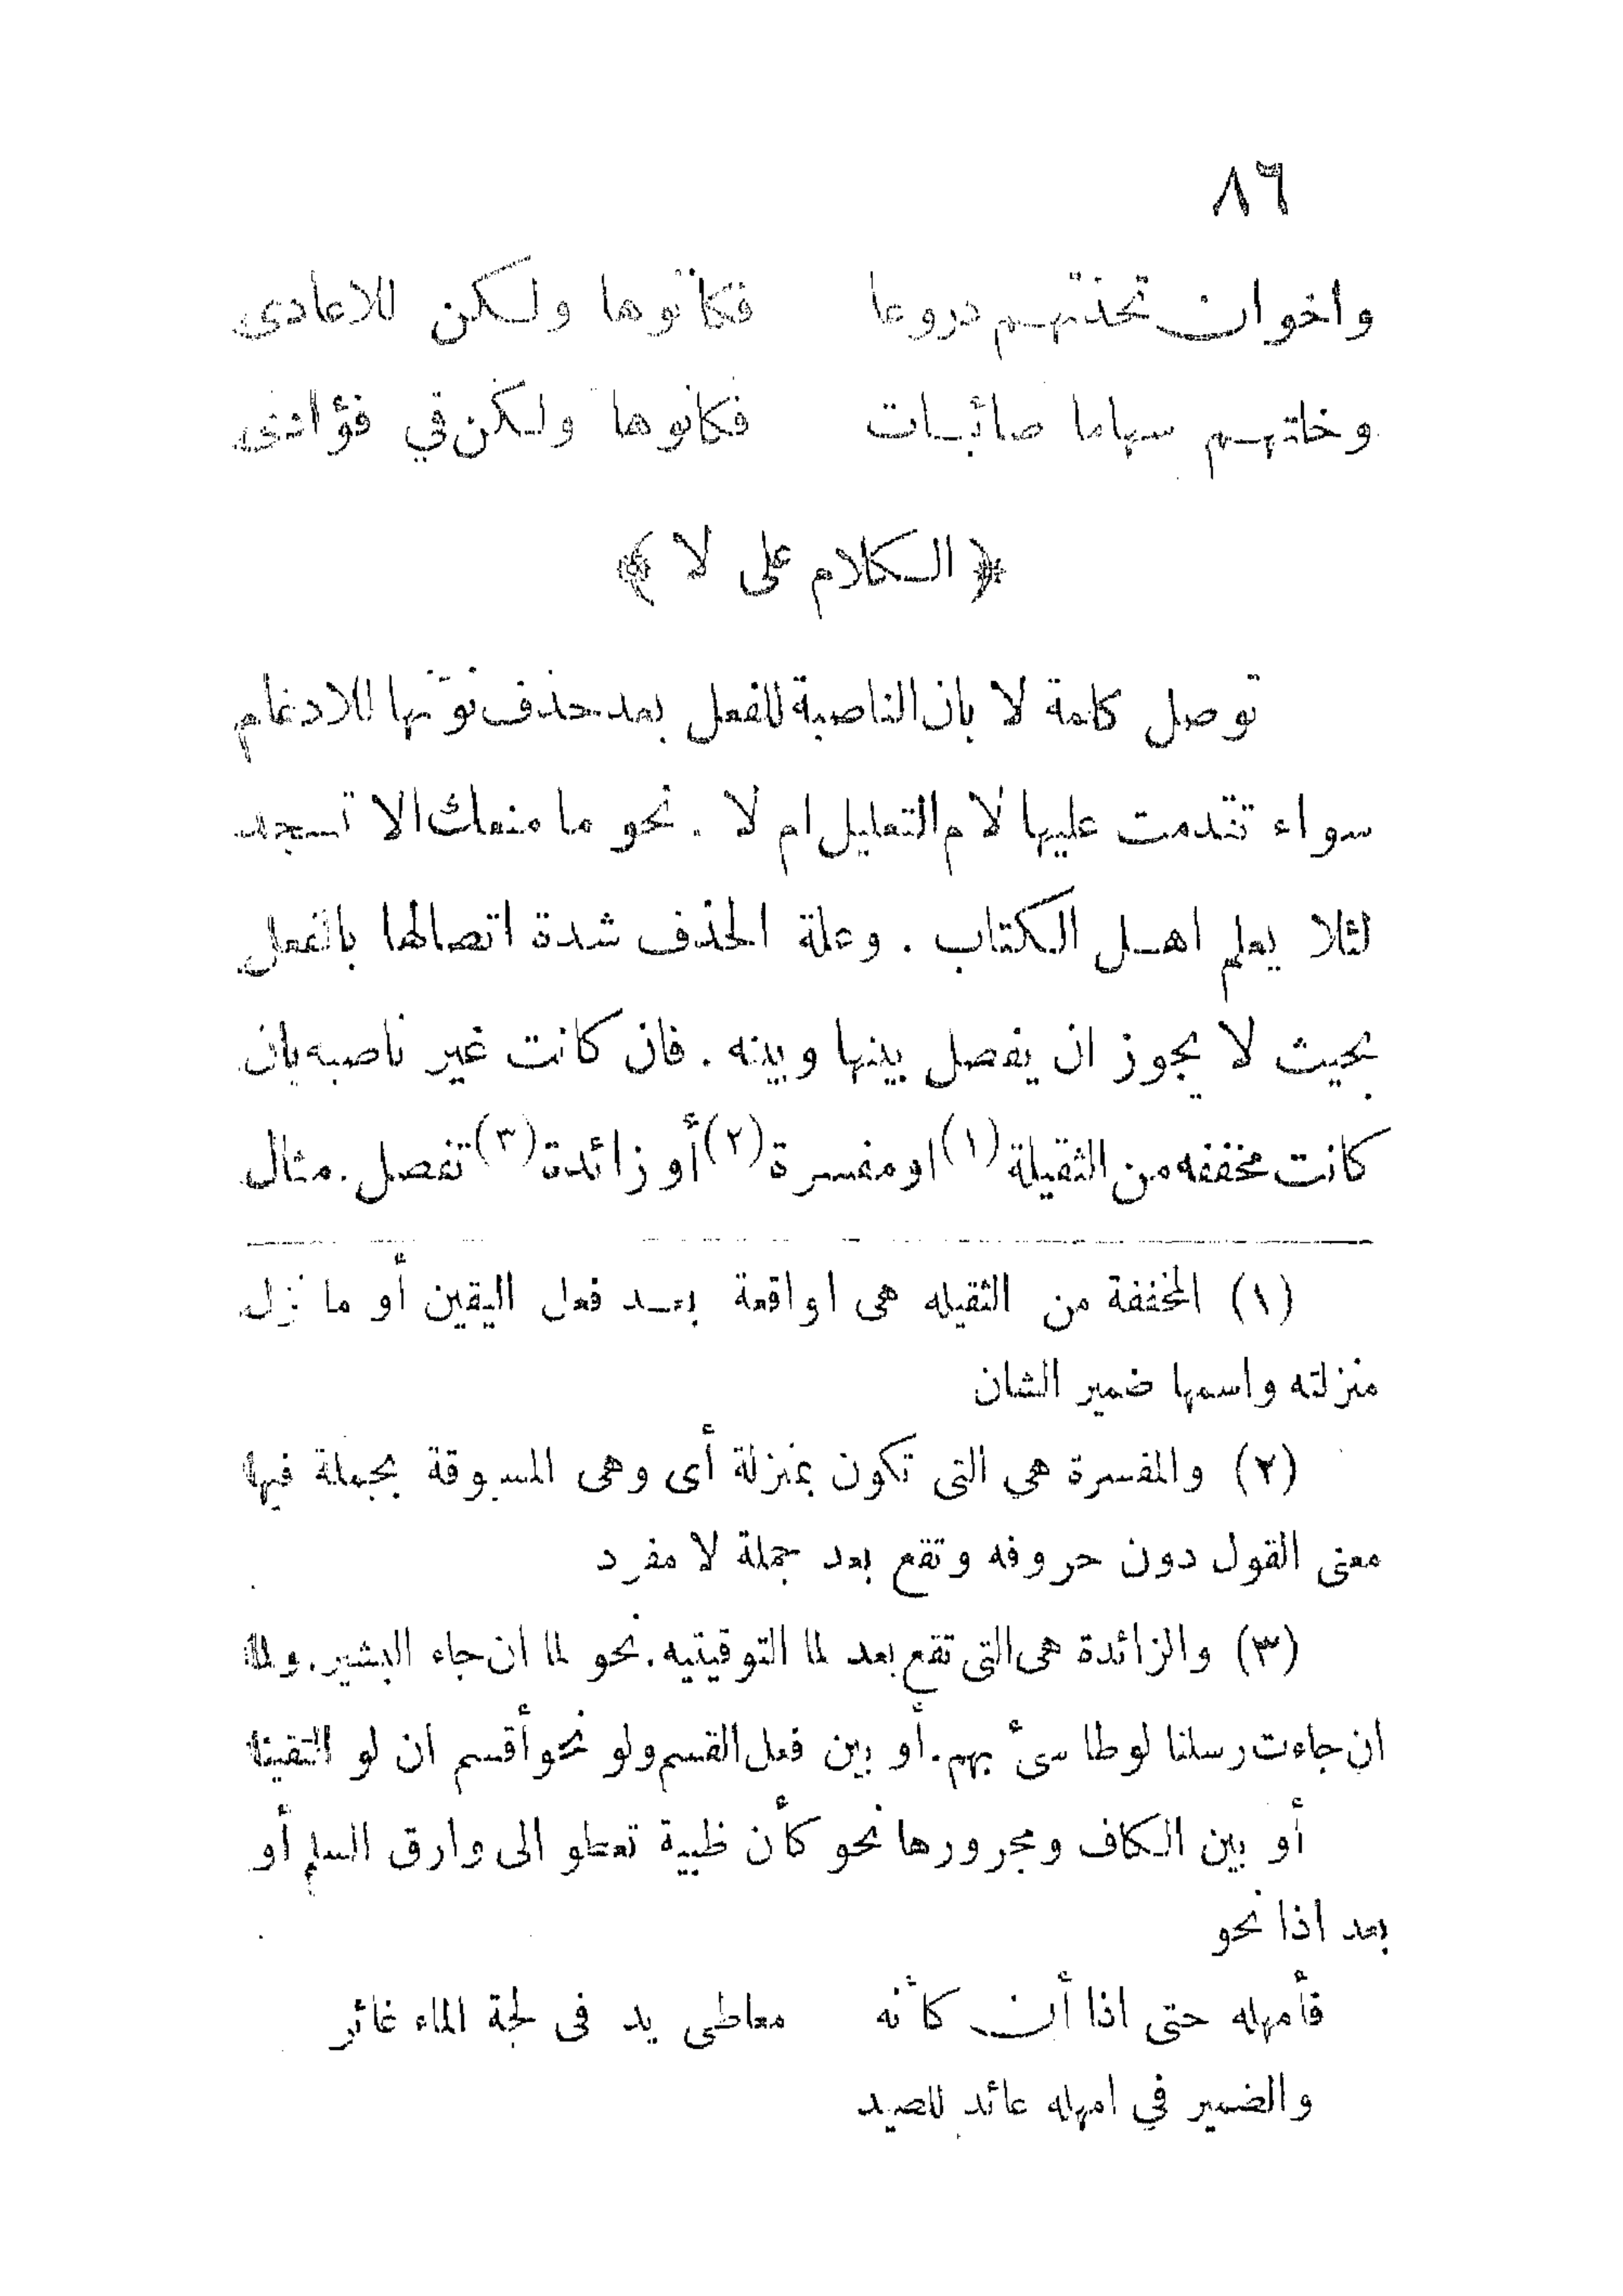 ٨٦
واخوان تخذتهم دروعا فكانوها ولكن للاعادى
وخلتهم سهاما صائبات فكانوها ولكن في فؤادى
﴿ الكلام على لا ﴾
توصل كلمة لا بان الناصبة للفعل بعد حذف نونها للادغام
سواء تقدمت عليها لام التعليل ام لا . نحو ما منعك الا تسجد
لئلا يعلم اهل الكتاب . وعلة الحذف شدة اتصالها بالفعل
بحيث لا يجوز ان يفصل بينها وبينه . فان كانت غير ناصبه بان
كانت مخففه من الثقيلة (١) او مفسرة (٢) أو زائدة (٣) تفصل . مثال
(١) المخففة من الثقيله هى اواقعة بعد فعل اليقين أو ما نزل
منزلته واسمها ضمير الشان
(٢) والمفسرة هي التى تكون بمنزلة أى وهى المسبوقة بجملة فيها
معنى القول دون حروفه وتقع بعد جملة لا مفرد
(٣) والزائدة هى التى تقع بعد لما التوقيتيه . نحو لما ان جاء البشير . ولما
ان جاءت رسلنا لوطا سىء بهم . أو بين فعل القسم ولو نحو أقسم ان لو التقينا
أو بين الكاف ومجرورها نحو كأن ظبية تعطو الى وارق السلم أو
بعد اذا نحو
فأمهله حتى اذا أن كأنه معاطى يد فى لجة الماء غائر
والضمير في امهله عائد للصيد